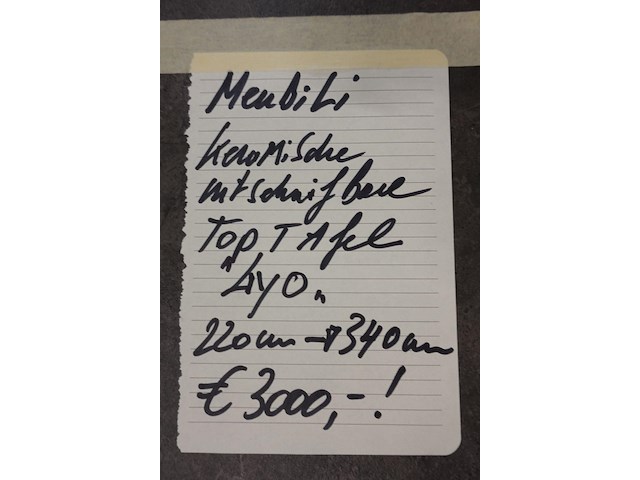 Meubili
Keramische
uitschuifbare
Top TAfel
"Lyo"
220cm → 340cm
€ 3000,-!